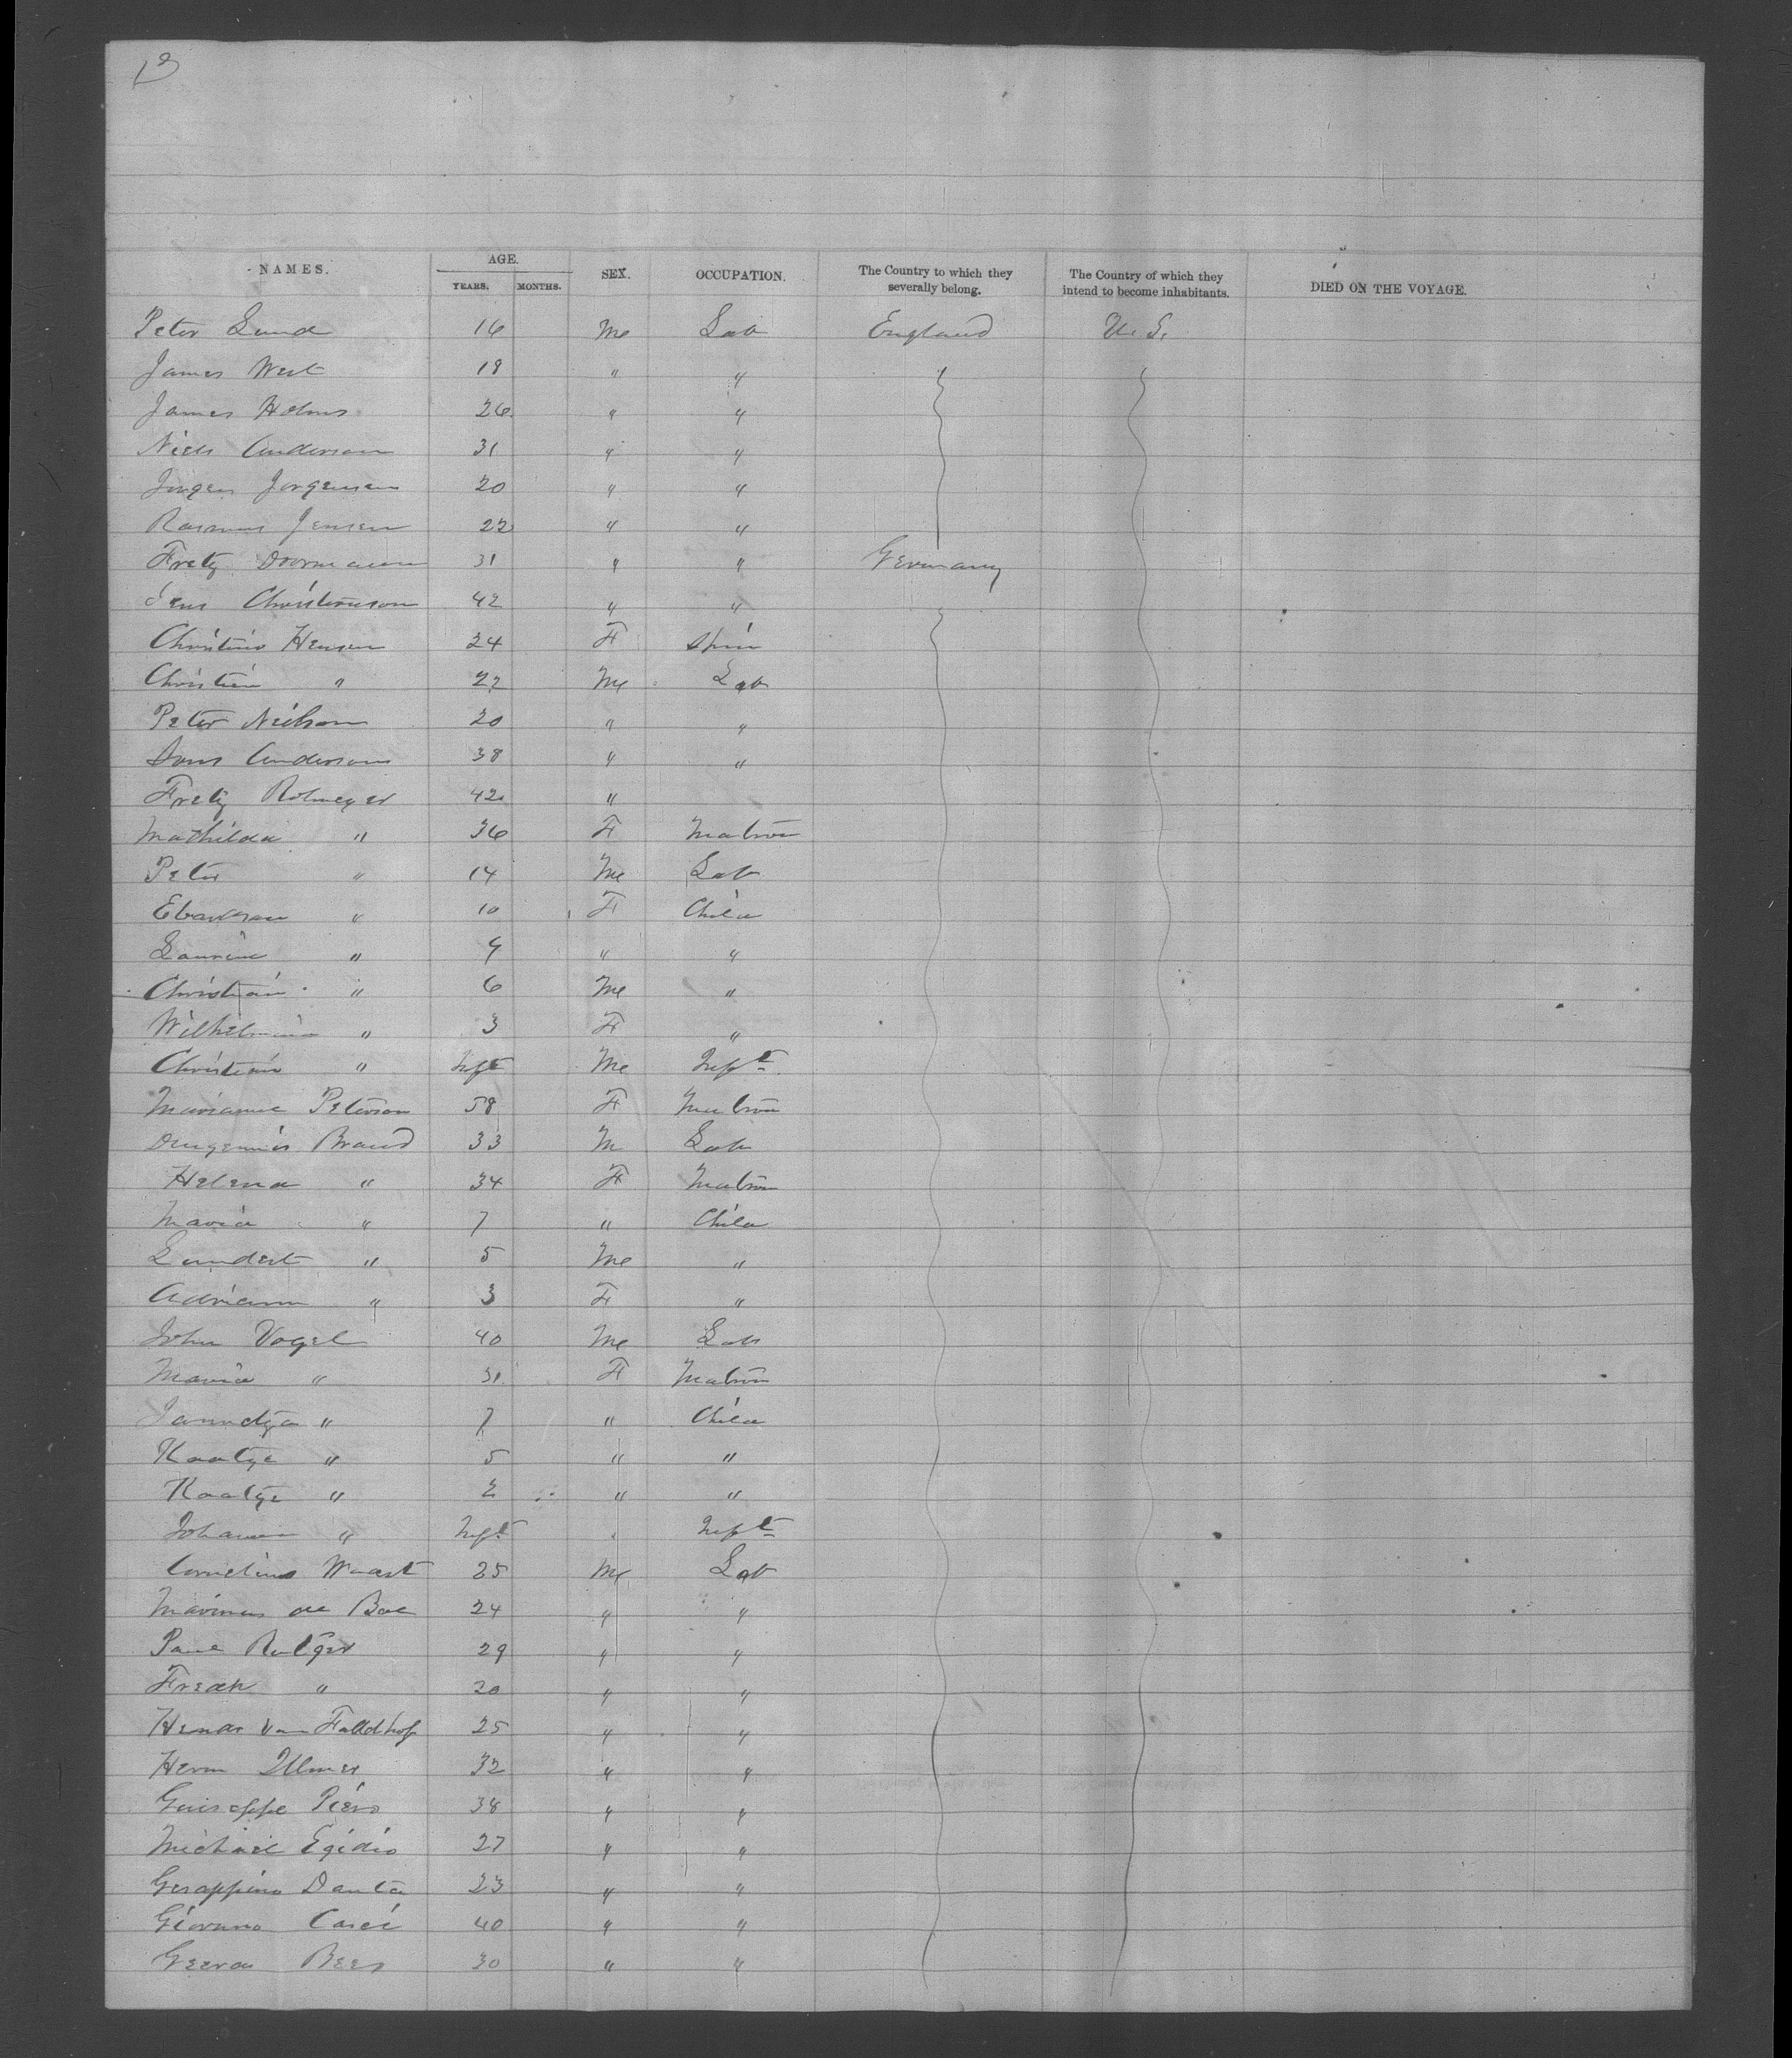 13
NAMES. AGE. YEARS. MONTHS. SEX. OCCUPATION. The Country to which they severally belong. The Country of which they intend to become inhabitants. DIED ON THE VOYAGE.
Peter Lund 16 Me Lab England U.S.
James West 18 " "
James Holms 26 " "
Niels Anderson 31 " "
Jorgen Jorgensen 20 " "
Rasmus Jensen 22 " "
Fretz Doormann 31 " " Germany
Jens Christenson 42 " "
Christine Hensen 24 F Spin
Christian " 22 Me Lab
Peter Neilson 20 " "
Anderson 38 " "
Fretz Rohmeyer 42 "
Mathilda " 36 F Matron
Peter " 14 Me Lab
" 10 F Child
Laurine " 9 " "
Christian " 6 Me "
Wilhelmina " 3 F "
Christian " Inft Me Inft
Marianne Peterson 58 F Matron
Brand 33 M Lab
Helena " 34 F Matron
Maria " 7 " Child
Lundert " 5 Me "
Adriann " 3 F "
John Vogel 40 Me Lab
Maria " 31 F Matron
Jannetja " 7 " Child
Kaatje " 5 " "
Kaatje " 2 " "
Johanna " Inft " Inft
Cornelius Waart 25 Me Lab
Marinus de Boe 24 " "
Rutger 29 " "
Fredk " 20 " "
Hendr Van Falldhof 25 " "
Herm Ulmer 32 " "
Guiseppe Piero 38 " "
Michael Egidio 27 " "
Gerappino Danta 23 " "
Giovano Casci 40 " "
Geerd Bees 30 " "